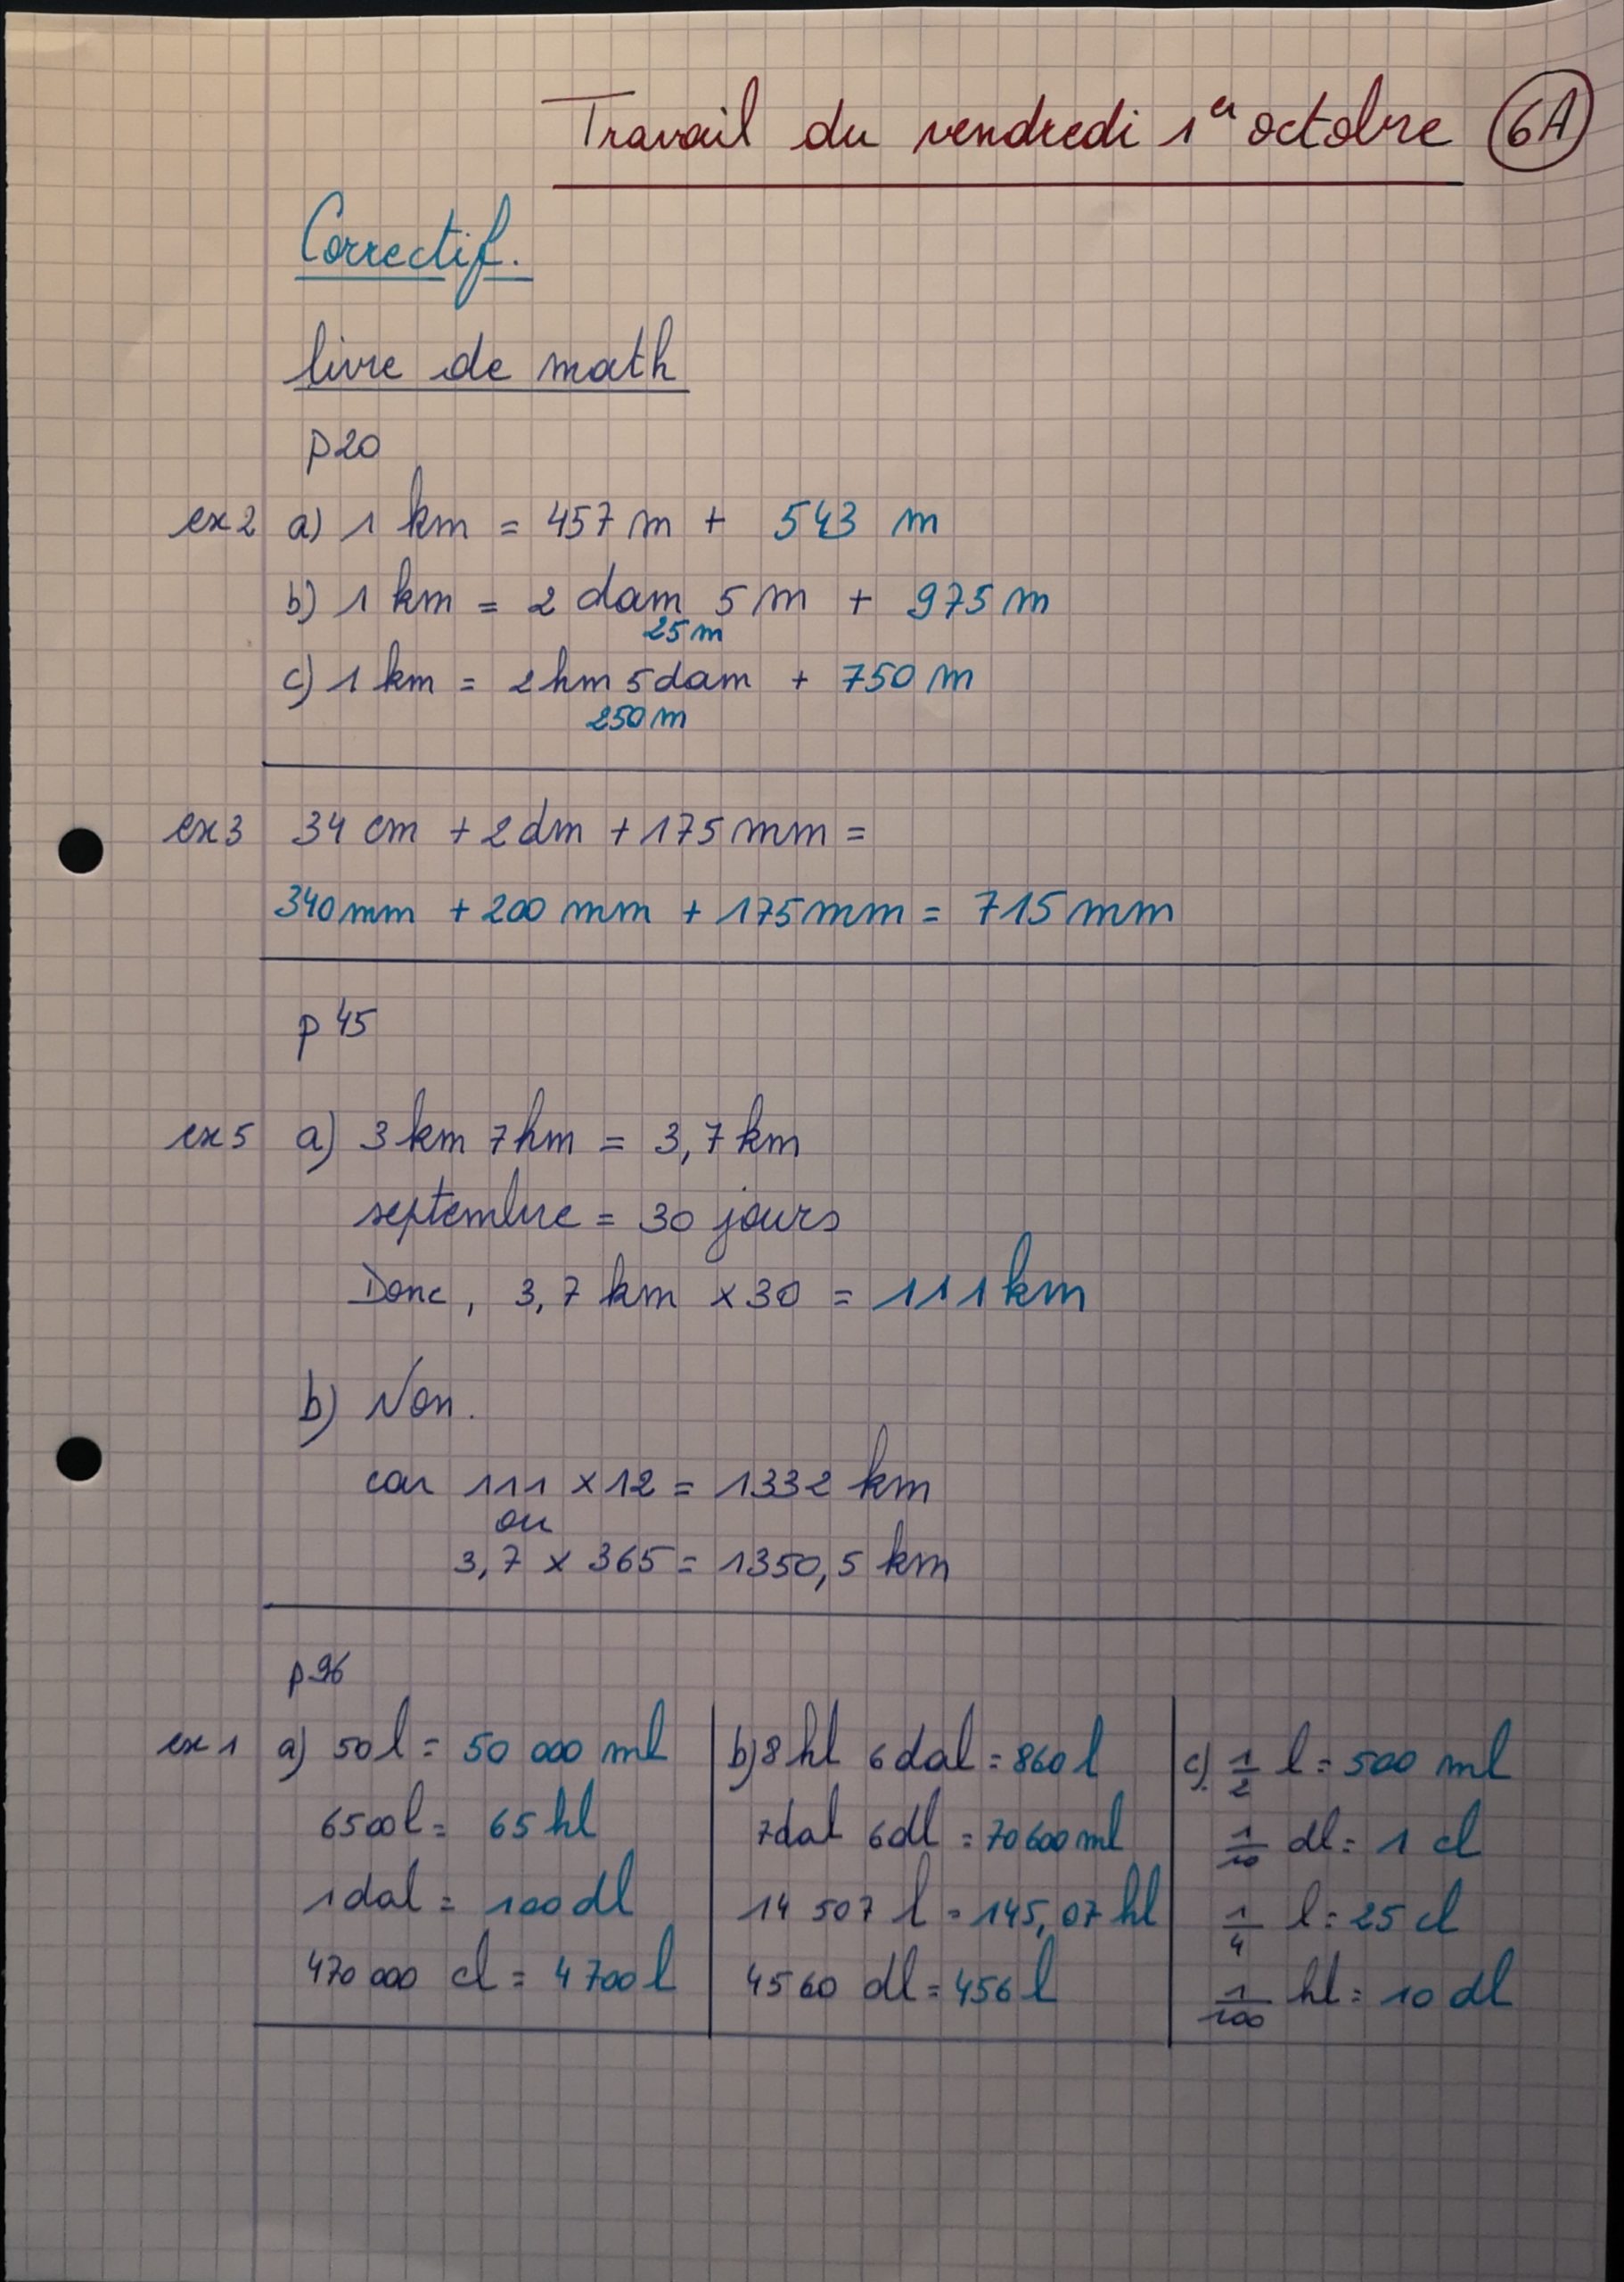 Travail du vendredi 1er octobre 6A
Correctif.
livre de math
p20
ex2 a) 1 km = 457 m + 543 m
b) 1 km = 2 dam 5 m + 975 m
25 m
c) 1 km = 2 hm 5 dam + 750 m
250 m
ex3 34 cm + 2 dm + 175 mm =
340 mm + 200 mm + 175 mm = 715 mm
p 45
ex5 a) 3 km 7 hm = 3,7 km
septembre = 30 jours
Donc, 3,7 km x 30 = 111 km
b) Non.
car 111 x 12 = 1332 km
ou
3,7 x 365 = 1350,5 km
p 96
ex1 a) 50 l = 50 000 ml
6500 l = 65 hl
1 dal = 100 dl
470 000 cl = 4 700 l
b) 8 hl 6 dal = 860 l
7 dal 6 dl = 70 600 ml
14 507 l = 145,07 hl
4560 dl = 456 l
c) 1/2 l = 500 ml
1/10 dl = 1 cl
1/4 l = 25 cl
1/100 hl = 10 dl